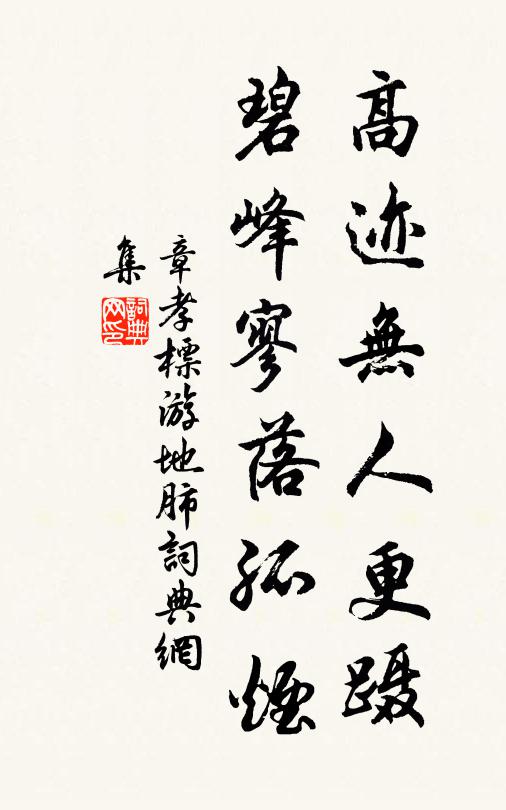 高迹無人更蹑
碧峰寥落孤煙
章孝標游地肺詞典網
集
詞典网印